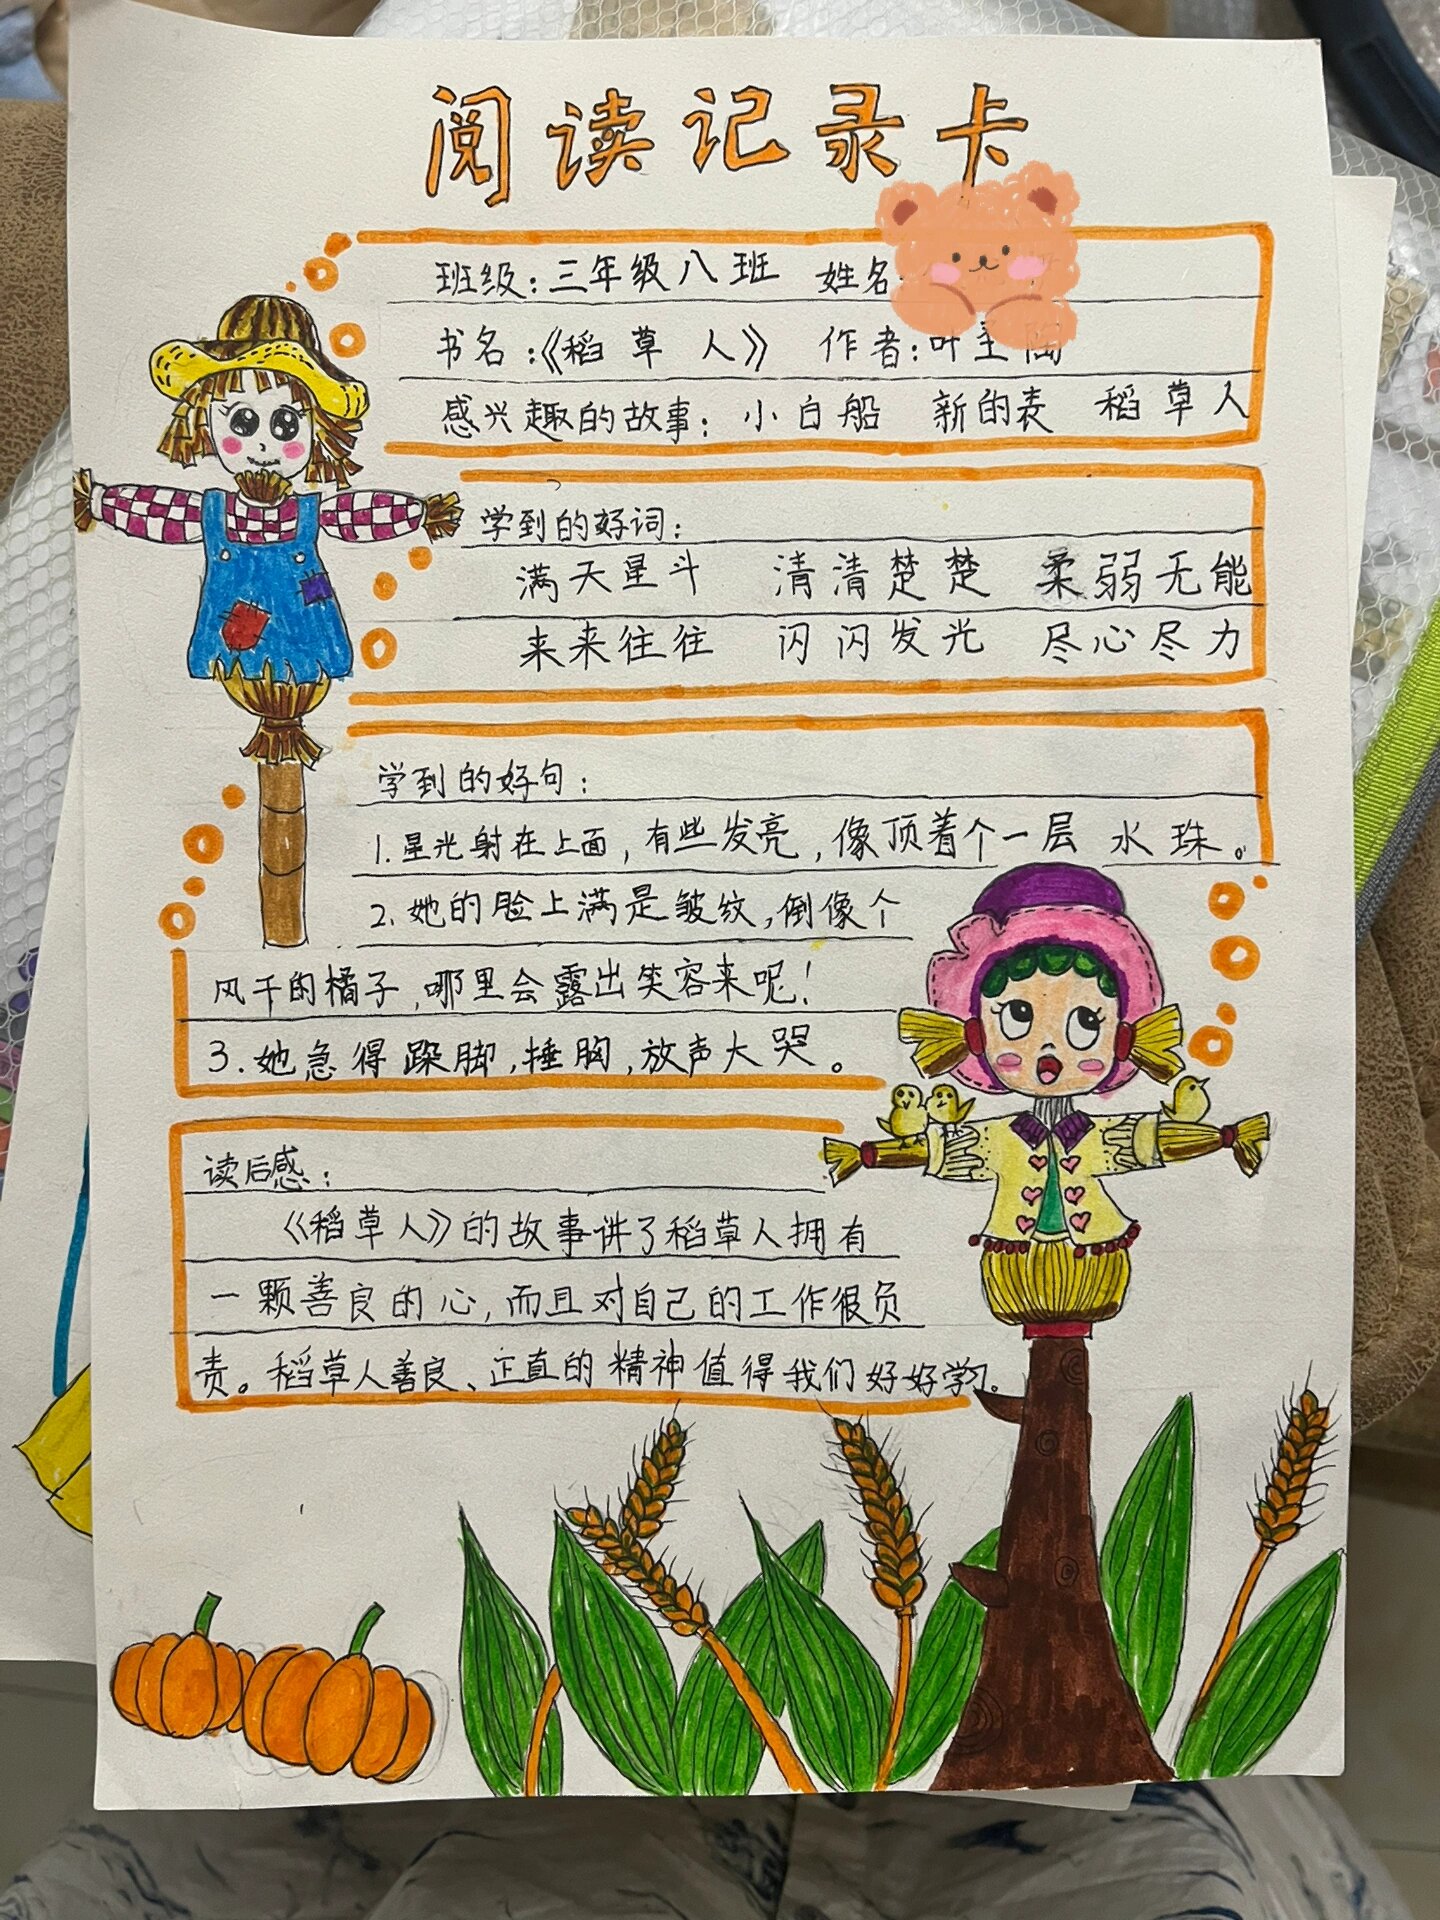 阅读记录卡
班级：三年级八班 姓名
书名：《稻草人》 作者：叶圣陶
感兴趣的故事：小白船 新的表 稻草人
学到的好词：
满天星斗 清清楚楚 柔弱无能
来来往往 闪闪发光 尽心尽力
学到的好句：
1.星光射在上面，有些发亮，像顶着个一层水珠。
2.她的脸上满是皱纹，倒像个
风干的橘子，哪里会露出笑容来呢！
3.她急得跺脚，捶胸，放声大哭。
读后感：
《稻草人》的故事讲了稻草人拥有
一颗善良的心，而且对自己的工作很负
责。稻草人善良、正直的精神值得我们好好学习。